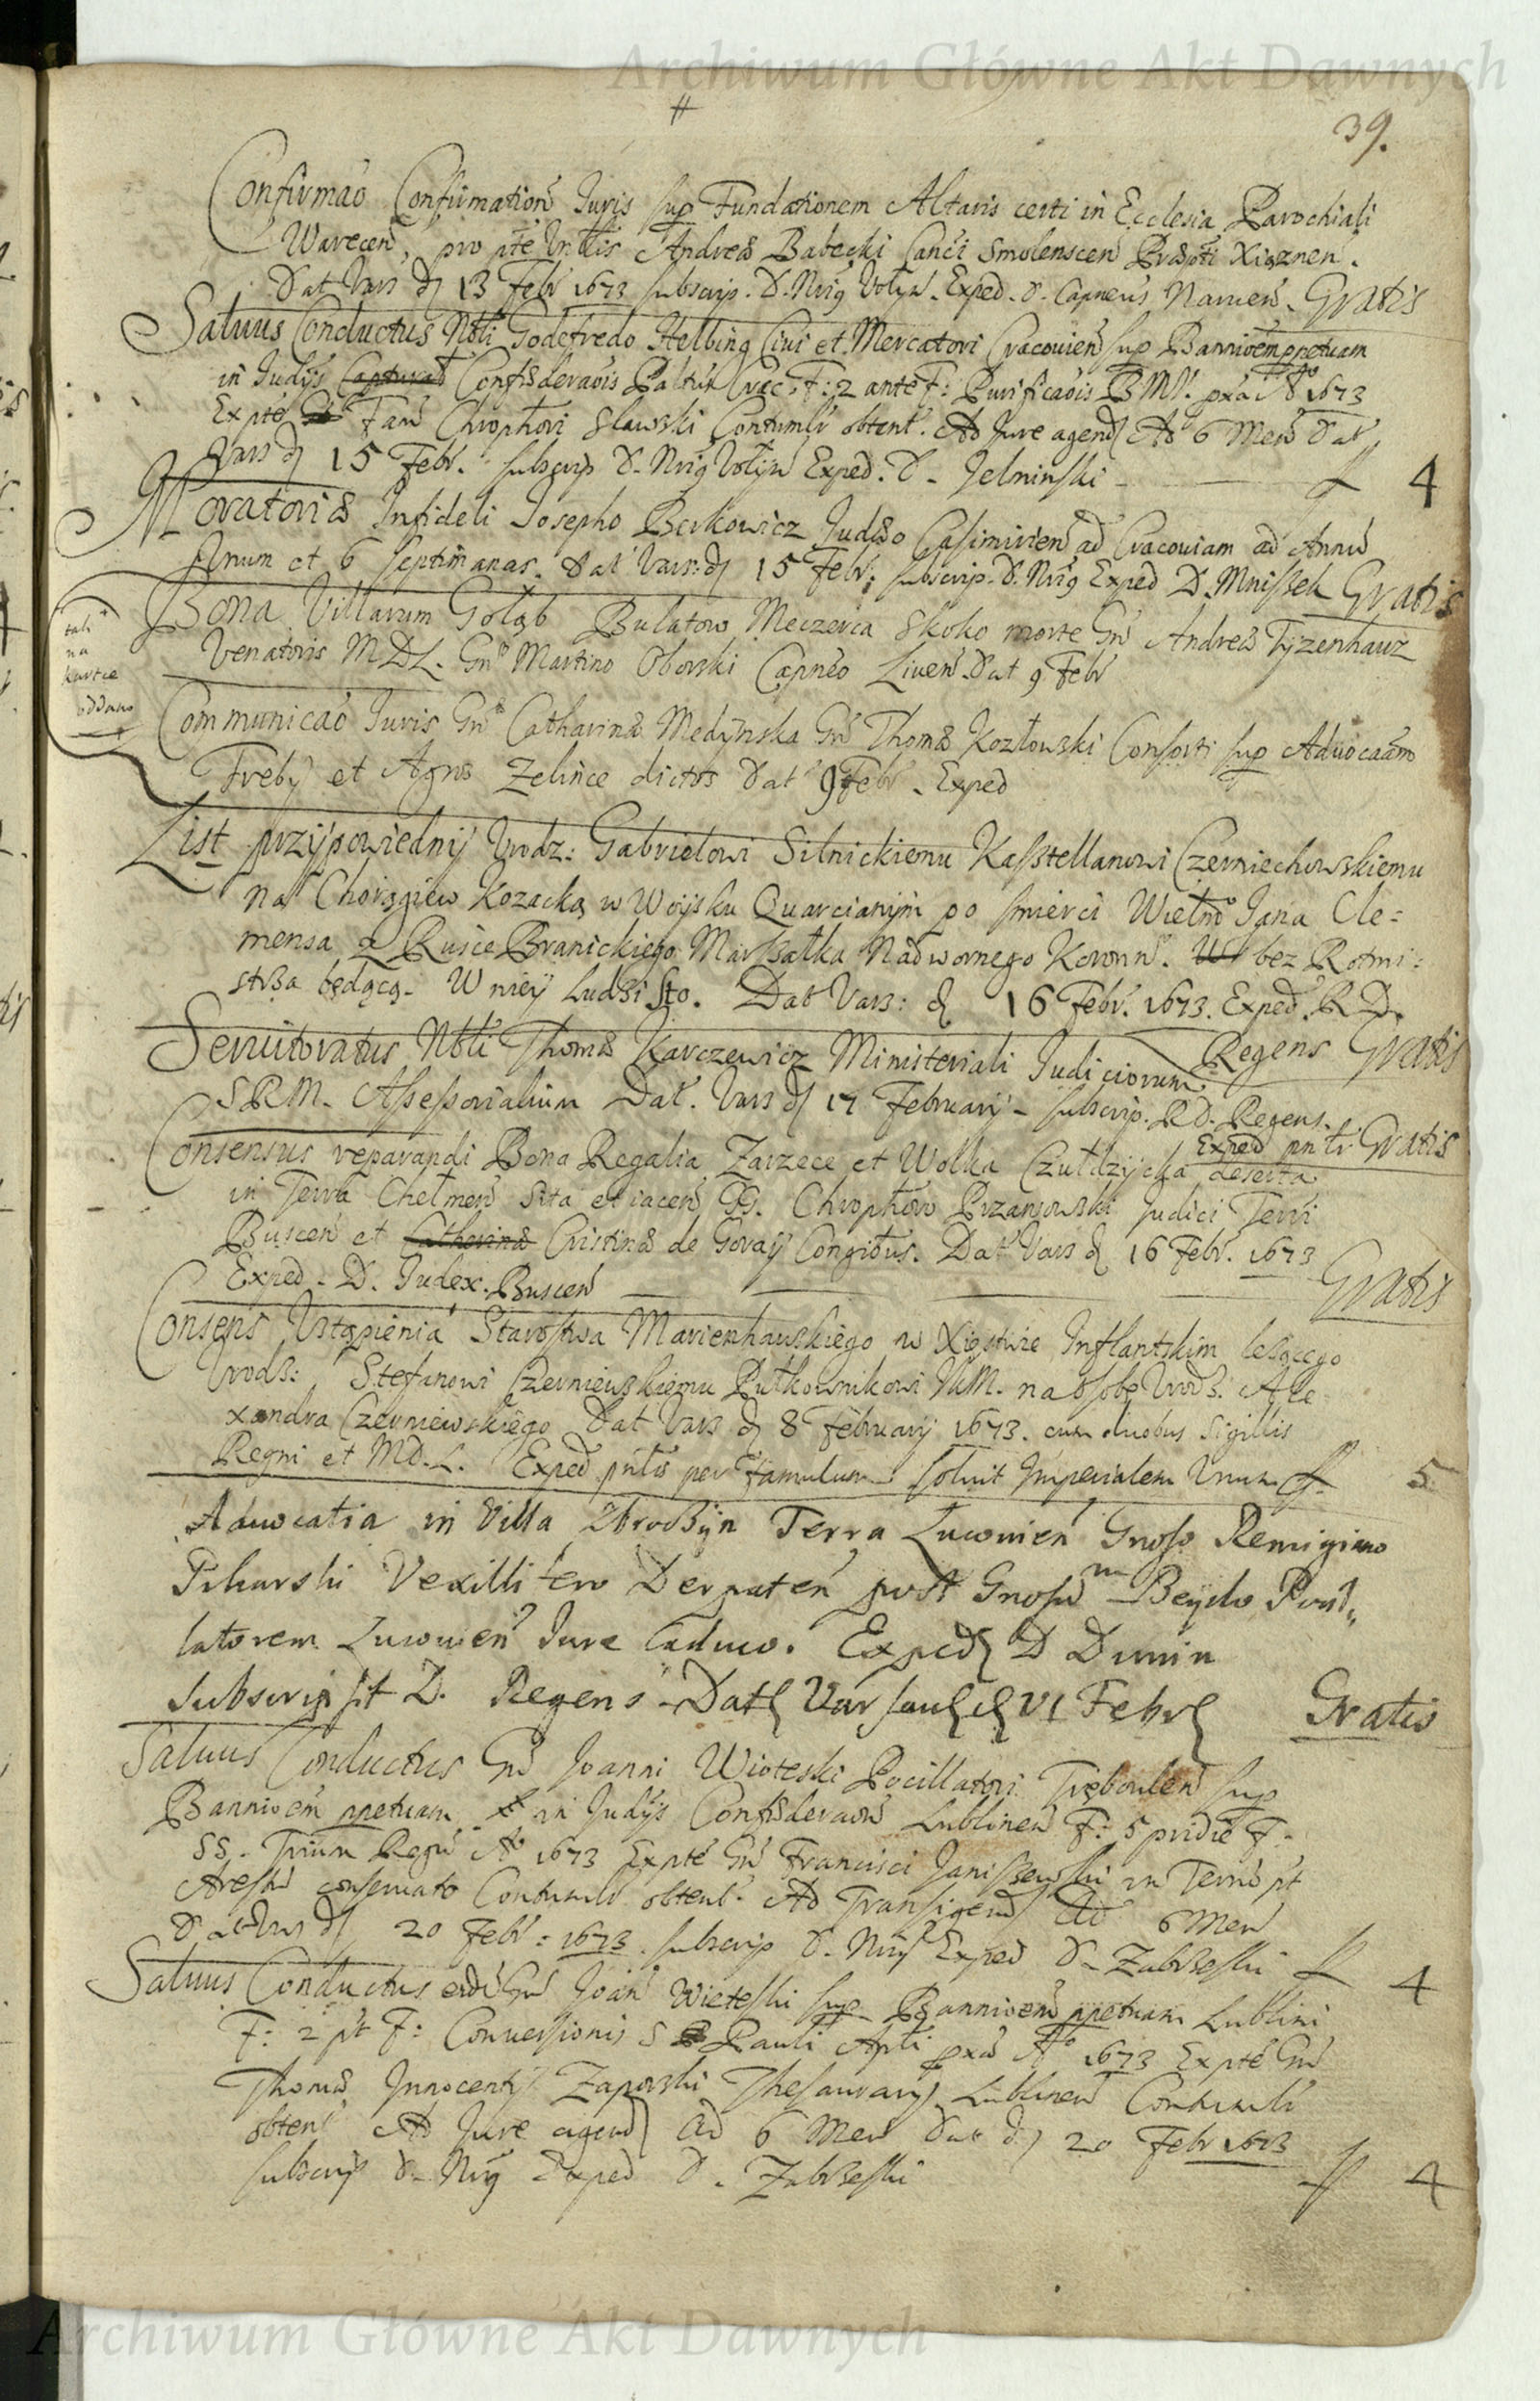 Archiwum Główne Akt Dawnych
39.
Confirmaō Confirmationē Iuris sup Fundationem Altaris certi in Ecclesia Parochiali
Warecen, pro pte Vrblis Andreæ Babecki Canci Smolenscen Præpti Xiąznen.
Dat Vars d 13 Febr 1673 subscrip. D. Nrig Volyn. Exped. D. Capneus Naruen. Gratis
Saluus Conductus Nbli Godefredo Helbing Ciui et Mercatori Cracouien sup Bannioem ppetuam
in Judijs Confæderaōis Paltūr Crac. F: 2 ante F: Purificaōis BMV. pxa Aº 1673
Expte Fam Chrophori Slawski Contumlr obtent. Ad Jure agend Ad 6 Men Dat
Vars d 15 Febr. subscrip D. Nrig Volyn Exped. D. Jelminski f 4
Moratoriæ Infideli Josepho Berkowicz Judæo Casimirien ad Cracouiam ad Annū
Vnum et 6 Septimanas. Dat Vars: d 15 Febr: subscrip. D. Nrig Exped D. Mniszek Gratis
tali
na
kartce
oddano
Bona Villarum Gołąb Bulatow Meczerca Skoko morte Gn Andreæ Tyzenhauz
Venatoris MDL. Gnō Martino Oborski Capnēo Liuen. Dat 9 Febr
Communicaō Iuris Gn Catharinæ Medynska Gn Thomæ Kozłowski Consorti sup Aduocaām
Freby et Agros Zelince dictos Dat 9 Febr. Exped
List przypowiedny Vrodz: Gabrielowi Silnickiemu Kasztellanowi Czerniechowskiemu
na Chorągiew Kozacką w Woysku Quarcianym po smierci Wielmº Jana Cle=
mensa z Rusce Branickiego Marszałka Nadwornego Koronn. bez Rotmi:
strza będącą. W niey Ludzi Sto. Dat Vars: d 16 Febr. 1673. Exped. R D.
Regens Gratis
Seruitoratus Nbli Thomæ Karczewicz Ministeriali Judiciorum
SRM. Assessorialium Dat. Vars d 17 February. subscrip. R D. Regens.
Exped Gratis
Consensus reparandi Bona Regalia Zarzece et Wolka Czułdzycka deserta
in Terra Chełmen sita et iacen GG. Chrophoro Przanowski Judici Terri
Buscen et Catherinæ Cristinæ de Goray Congibus. Dat Vars d 16 Febr. 1673
Exped. D. Judex. Buscen Gratis
Consens Vstąpienia Starostwa Marienhauskiego w Xięstwie Inflantskim leżącego
Vrodz: Stefanowi Czerniewskiemu Pułkownikowi JKM. na osobę Vrodz. Ale
xandra Czerniewskiego Dat Vars d 8 February 1673. cum duobus Sigillis
Regni et MD.L. Exped pntis per famulum soluit Imperialem Vnum f 5
Aduocatia in Villa Zbrodzyn Terra Lucouien Gnoso Remigiano
Pikarski Vexillifero Derpaten post Gnosum Beydo Post„
latorem Lucouien Jure Caduco. Exped D Dunin
Subscripsit D. Regens Dat Varsau d VI Febr Gratis
Saluus Conductus Gn Joanni Wioteski Pocillatori Trębowlen sup
Bannioem ppetuam in Judijs Confæderaōis Lublinen F: 5 pridie F.
SS. Trium Regū Aº 1673 Expte Gn Francisci Janiszewski in Termō pt
Arestū conseruato Contumlr obtent. Ad Transigend Ad 6 Men
Dat Vars d 20 Febr: 1673. subscrip D. Nrig Exped D. Zabrzeski f 4
Saluus Conductus eidē Gn Joan Wieteski sup Bannioem ppetuam Lublini
F: 2 pt F: Conuersionis S Pauli Apli pxa Aº 1673 Expte Gn
Thomæ Innocenty Zaporski Thesaurary Lublinen Contumlr
obtent Ad Jure agend Ad 6 Men Dat d 20 Febr 1673
subscrip D. Nrig Exped D. Zabrzeski f 4
Archiwum Główne Akt Dawnych